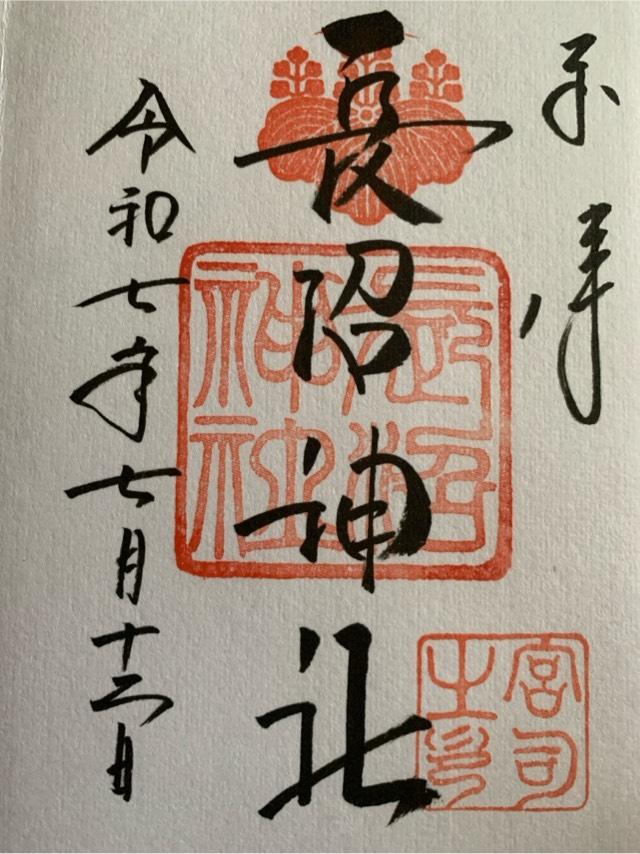 奉拝
長沼神社
令和七年七月十二日
長沼
神社
宮司
之印